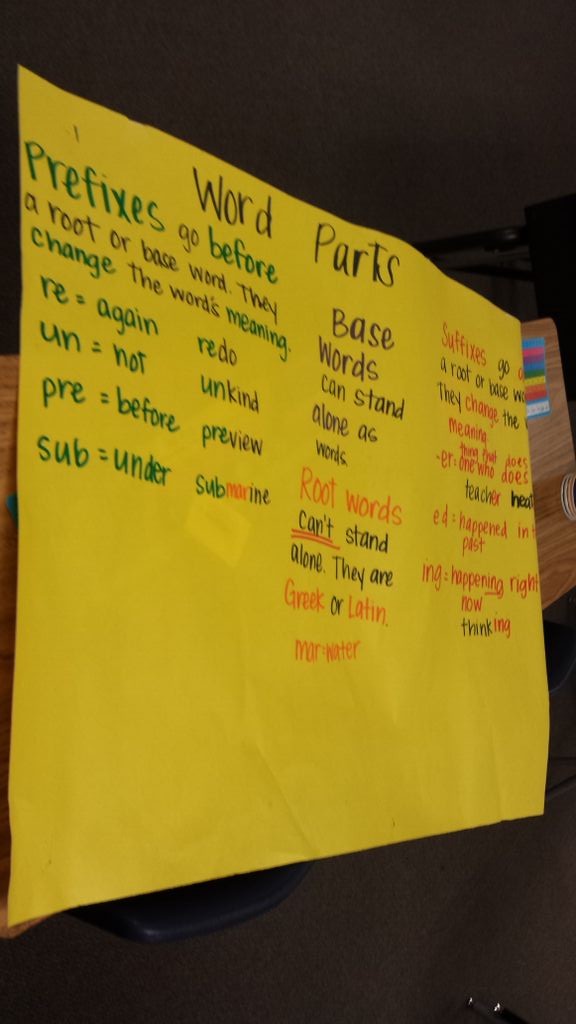 Word Parts
Prefixes go before
a root or base word. They
change the word's meaning.
re = again redo
un = not unkind
pre = before preview
sub = under submarine
Base
Words
can stand
alone as
words.
Root words
can't stand
alone. They are
Greek or Latin.
mar=water
Suffixes go
a root or base
They change the
meaning.
thing that does
-er: one who does
teacher heat
ed = happened in
past
ing = happening right
now
thinking